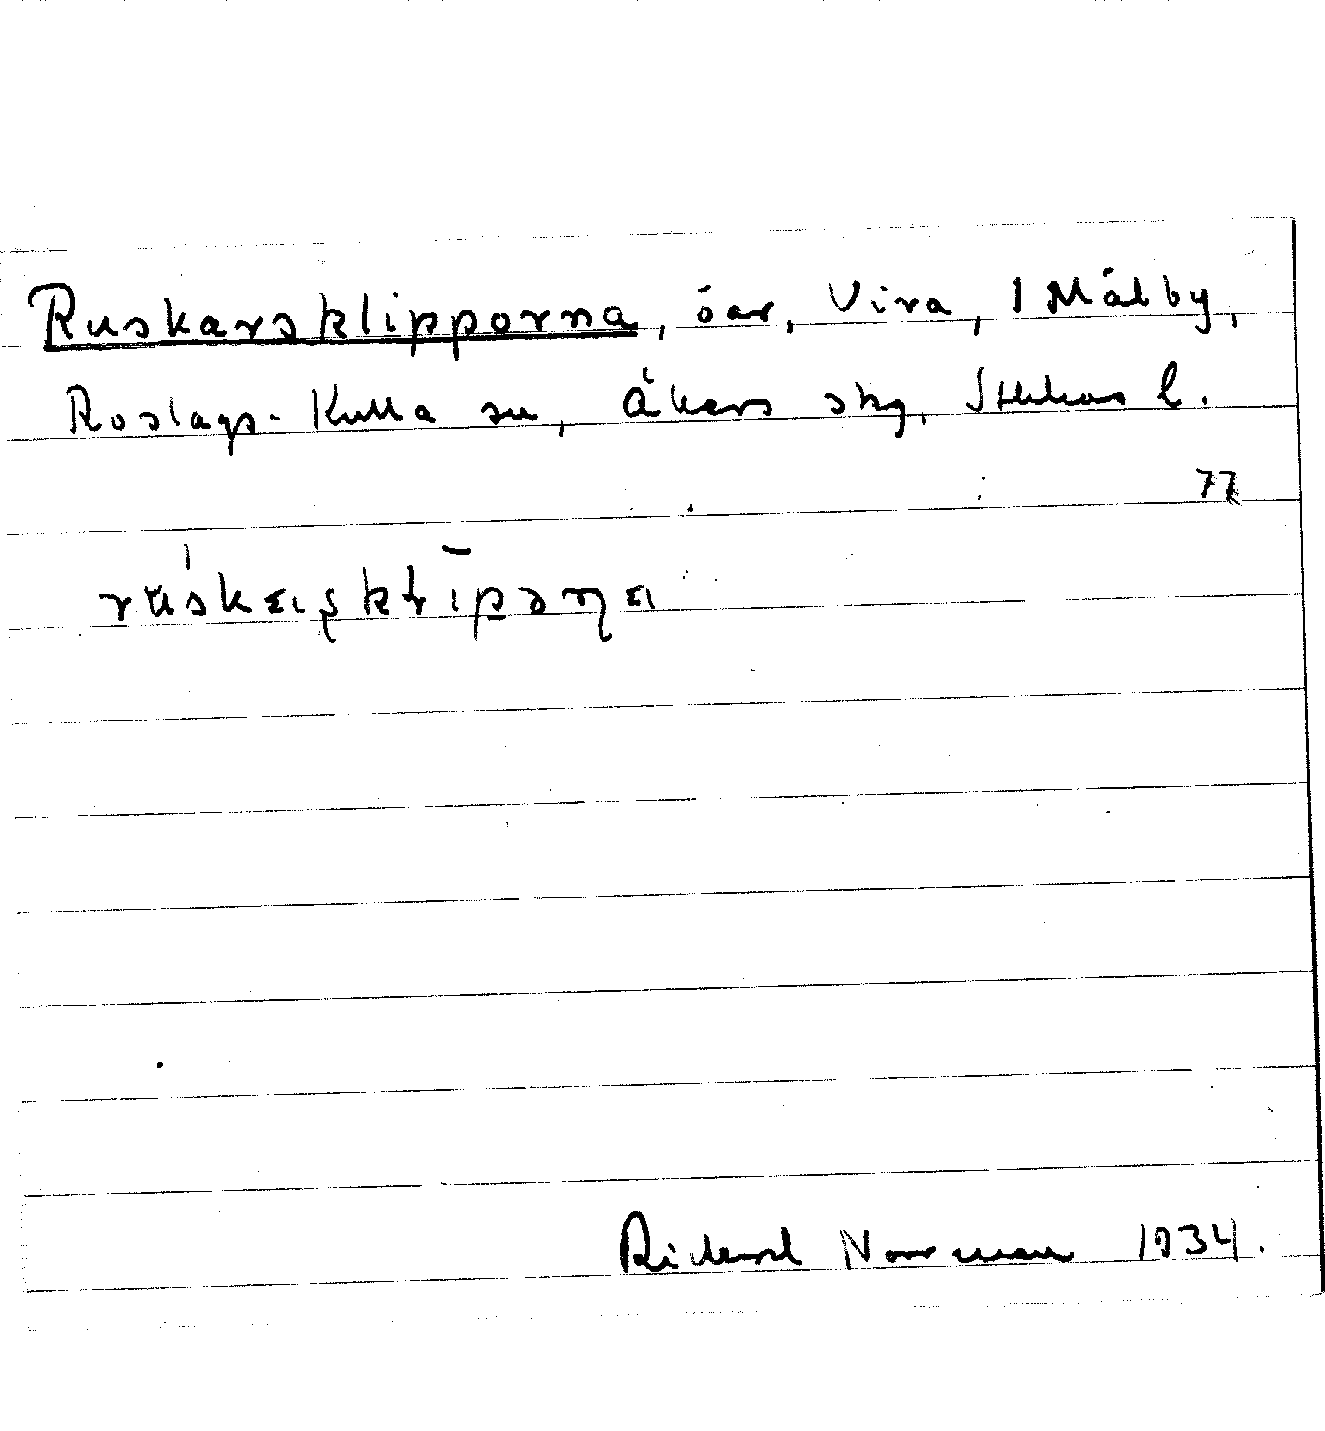 Ruskarsklipporna, öar, Vira, 1 Målby,
Roslags-Kulla sn, Åkers skg, Sthlms l.
77
Rickard Norrman 1934.